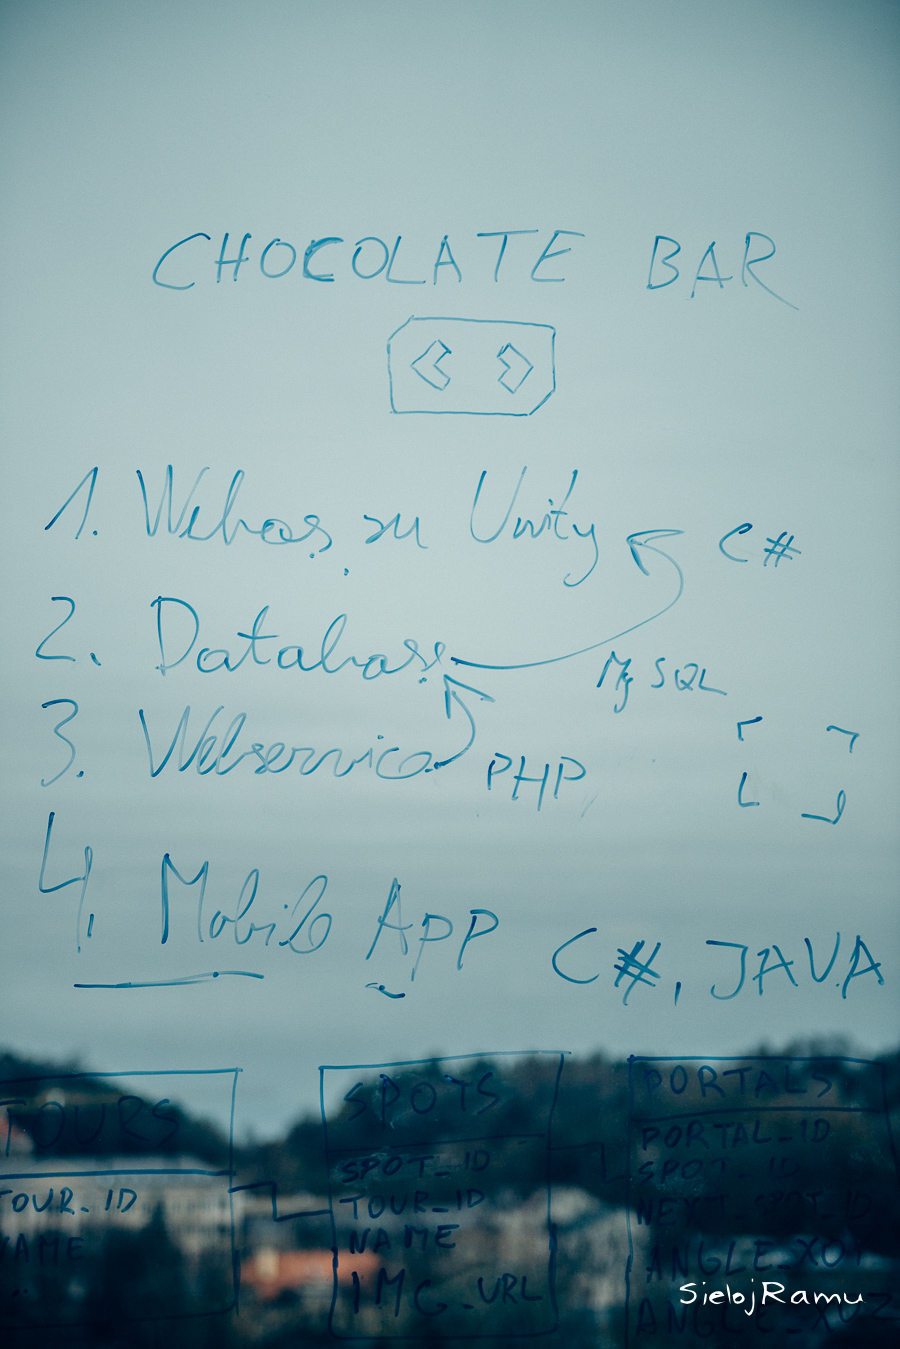 CHOCOLATE BAR
1. Webas su Unity C#
2. Database MySQL
3. Webservice PHP
4. Mobile App C#, JAVA
TOURS
TOUR_ID
NAME
..
SPOTS
SPOT_ID
TOUR_ID
NAME
IMG_URL
PORTALS
PORTAL_ID
SPOT_ID
NEXT_SPOT_ID
ANGLE_XOY
ANGLE_XOZ
SielojRamu